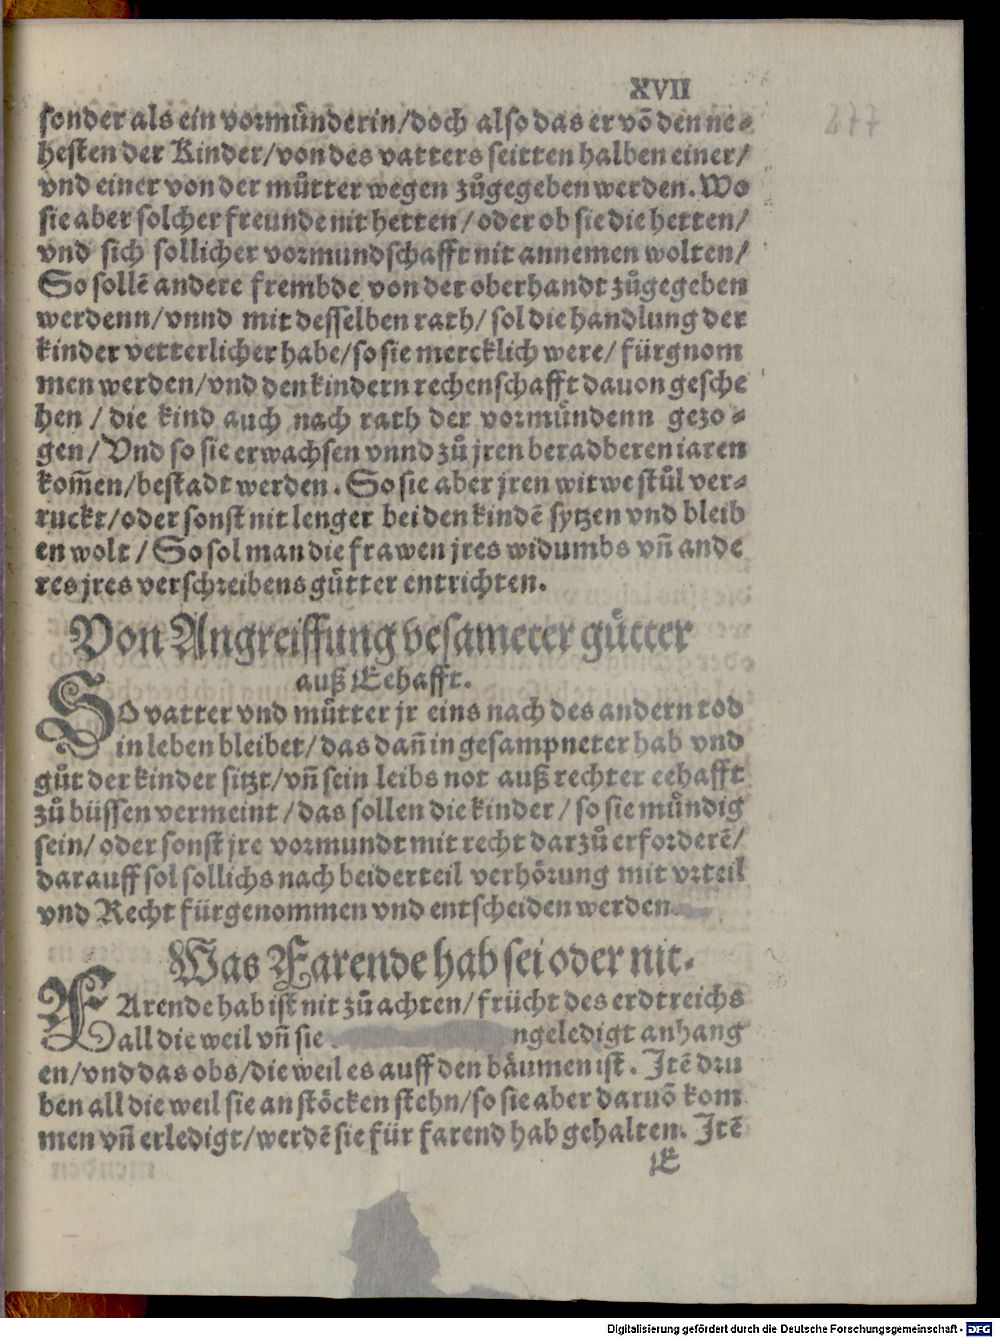 XVII
277
sonder als ein vormünderin/doch also das er võ den ne-
hesten der Kinder/von des vatters seitten halben einer/
vnd einer von der můtter wegen zůgegeben werden. Wo
sie aber solcher freunde nit hetten/oder ob sie die hetten/
vnd sich sollicher vormundschafft nit annemen wolten/
So sollẽ andere frembde von der oberhandt zůgegeben
werdenn/vnnd mit desselben rath/sol die handlung der
kinder vetterlicher habe/so sie mercklich were/fürgnom
men werden/vnd den kindern rechenschafft dauon gesche
hen/die kind auch nach rath der vormündenn gezo-
gen/Vnd so sie erwachsen vnnd zů jren beradberen iaren
kom̃en/bestadt werden. So sie aber jren witwe stůl ver-
ruckt/oder sonst nit lenger bei den kindẽ sytzen vnd bleib
en wolt/So sol man die frawen jres widumbs vñ ande
res jres verschreibens gütter entrichten.
Von Angreiffung besameter gütter
auß Eehafft.
SO vatter vnd můtter jr eins nach des andern tod
in leben bleibet/das dañ in gesampneter hab vnd
gůt der kinder sitzt/vñ sein leibs not auß rechter eehafft
zů büssen vermeint/das sollen die kinder/so sie mündig
sein/oder sonst jre vormundt mit recht darzů erforderẽ/
darauff sol sollichs nach beiderteil verhörung mit vrteil
vnd Recht fürgenommen vnd entscheiden werden
Was Farende hab sei oder nit.
FArende hab ist nit zů achten/frücht des erdtreichs
all die weil vñ sie ngeledigt anhang
en/vnd das obs/die weil es auff den bäumen ist. Itẽ dru
ben all die weil sie an stöcken stehn/so sie aber daruõ kom
men vñ erledigt/werdẽ sie für farend hab gehalten. Itẽ
E
Digitalisierung gefördert durch die Deutsche Forschungsgemeinschaft - DFG